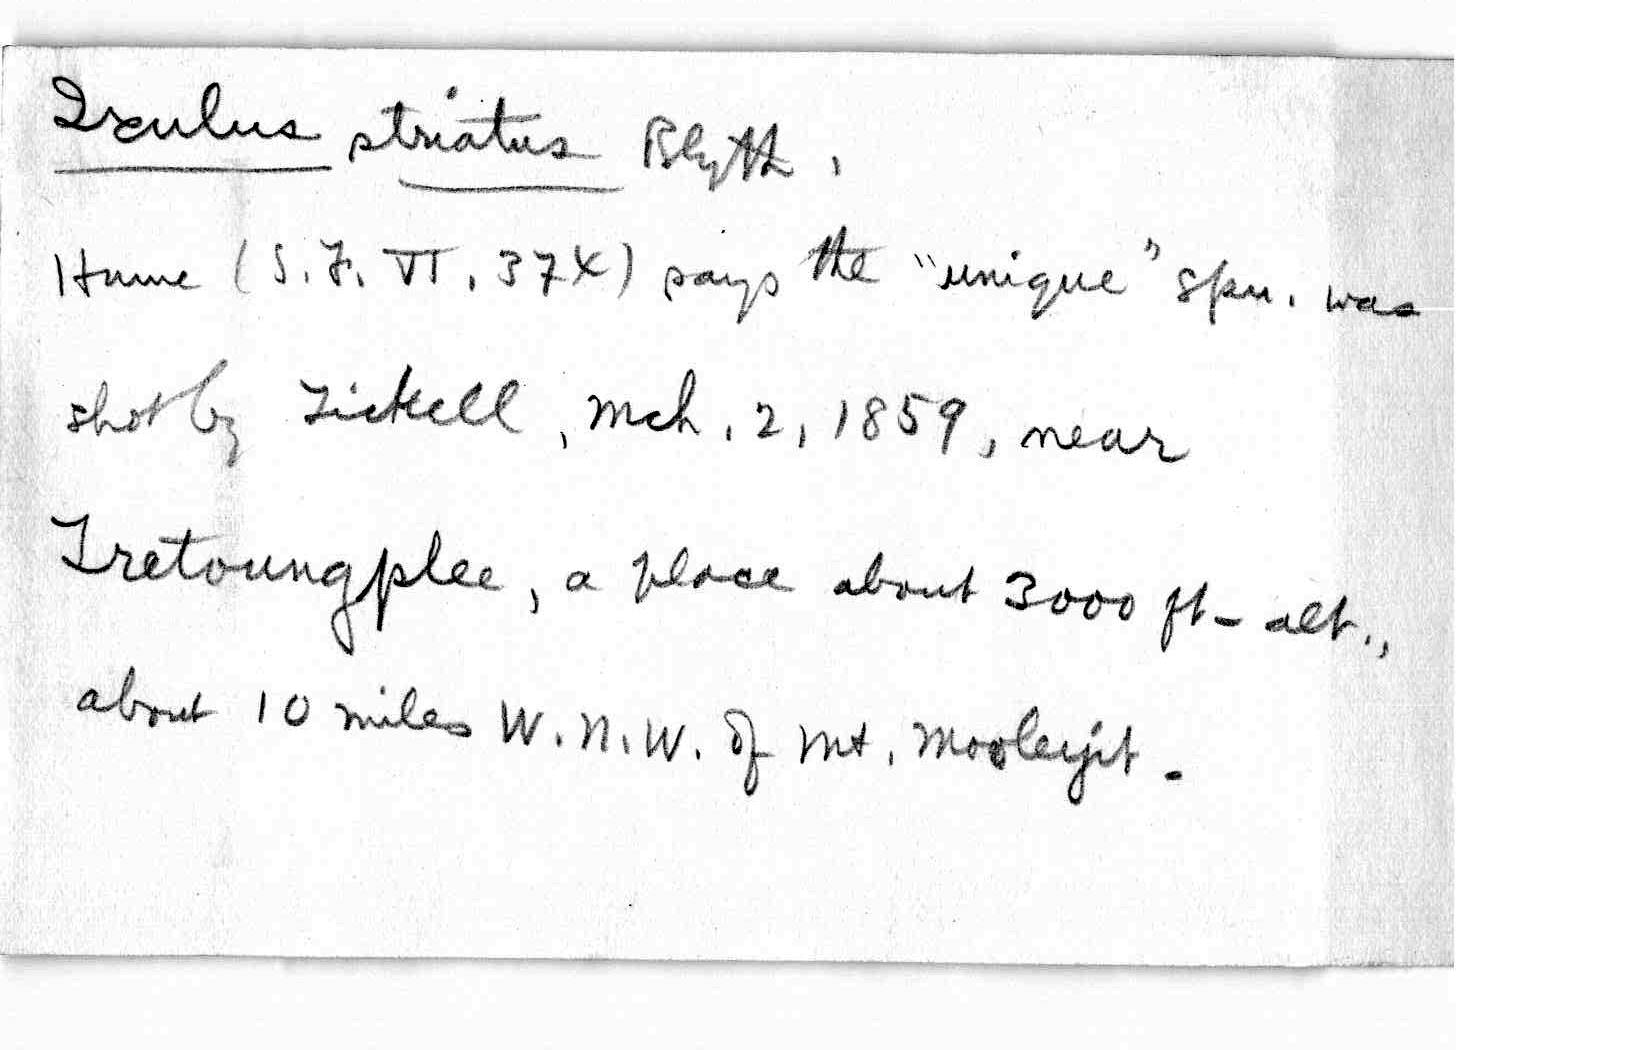 Ixulus striatus Blyth.
Hume (S.F. VI. 374) says the "unique" spn. was
shot by Tickell, Mch. 2, 1859, near
Tretoungplee, a place about 3000 ft- alt.,
about 10 miles W.N.W. of Mt. Mooleyit-